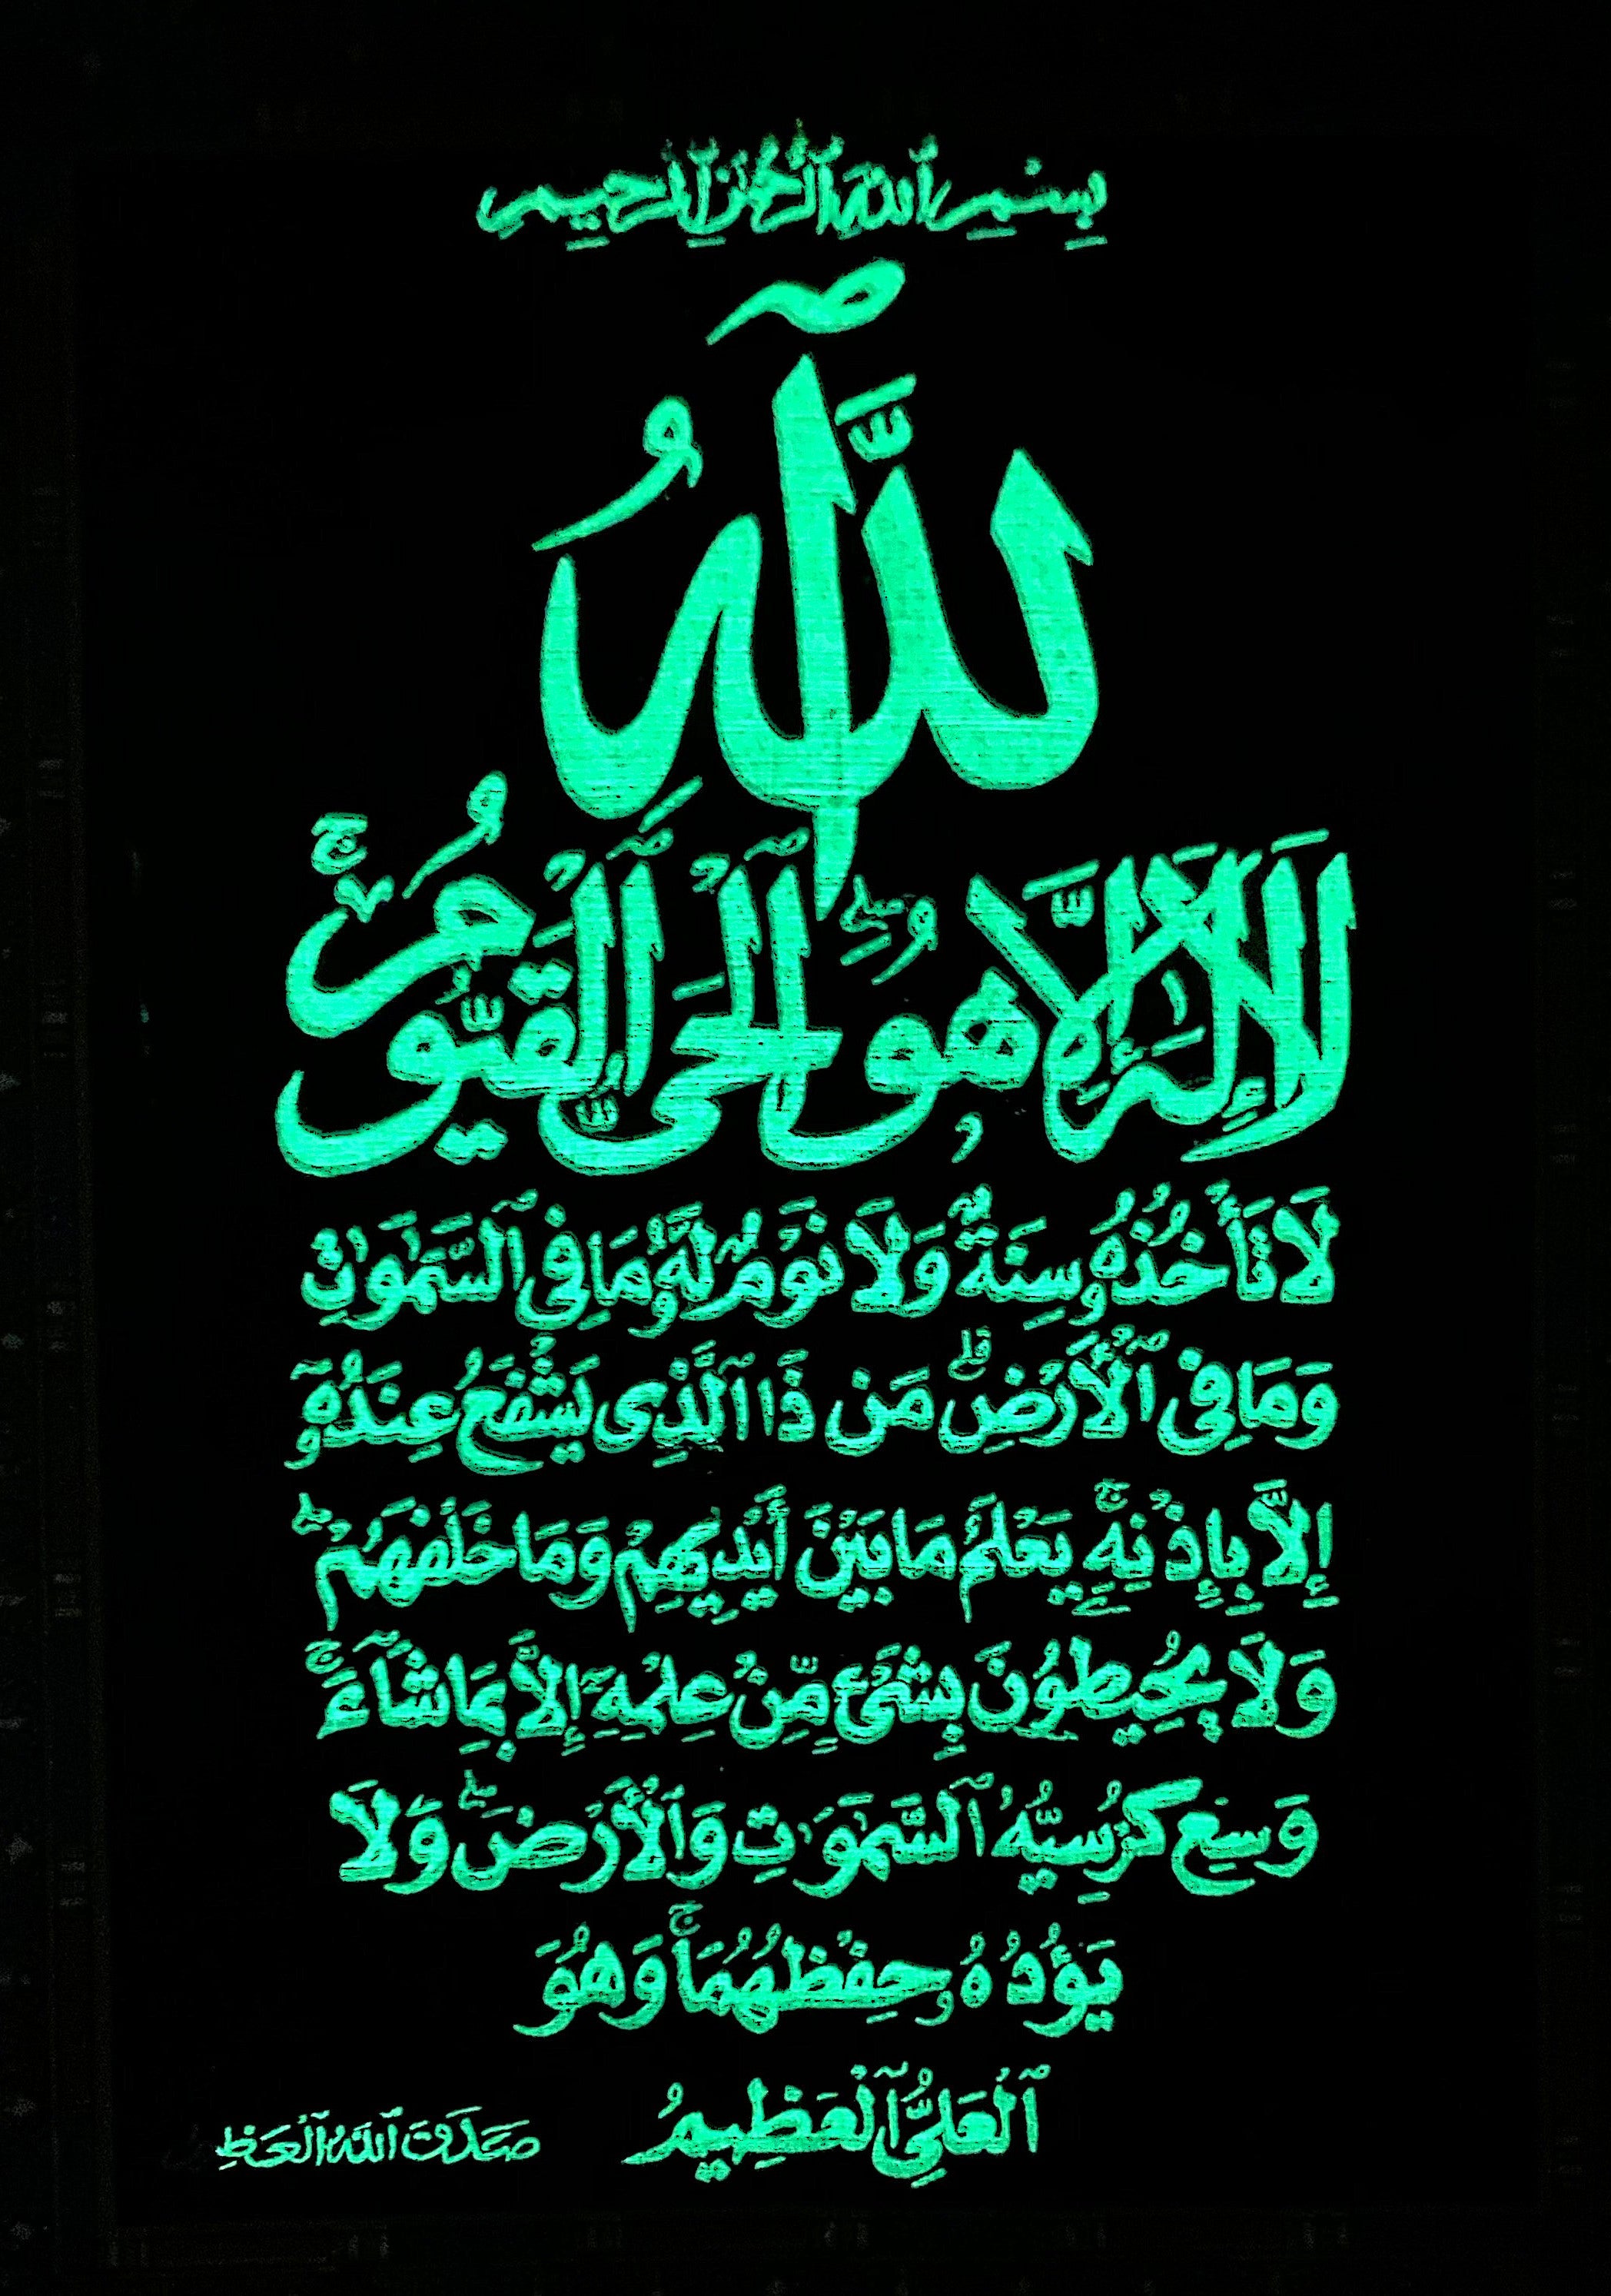 بِسْمِ ٱللَّهِ ٱلرَّحْمَٰنِ ٱلرَّحِيمِ
ٱللَّهُ
لَآ إِلَٰهَ إِلَّا هُوَ ٱلْحَىُّ ٱلْقَيُّومُ ۚ
لَا تَأْخُذُهُۥ سِنَةٌ وَلَا نَوْمٌ لَّهُۥ مَا فِى ٱلسَّمَٰوَٰتِ
وَمَا فِى ٱلْأَرْضِ ۗ مَن ذَا ٱلَّذِى يَشْفَعُ عِندَهُۥٓ
إِلَّا بِإِذْنِهِۦ ۚ يَعْلَمُ مَا بَيْنَ أَيْدِيهِمْ وَمَا خَلْفَهُمْ ۖ
وَلَا يُحِيطُونَ بِشَىْءٍ مِّنْ عِلْمِهِۦٓ إِلَّا بِمَا شَآءَ ۚ
وَسِعَ كُرْسِيُّهُ ٱلسَّمَٰوَٰتِ وَٱلْأَرْضَ ۖ وَلَا
يَـُٔودُهُۥ حِفْظُهُمَا ۚ وَهُوَ
ٱلْعَلِىُّ ٱلْعَظِيمُ
صَدَقَ ٱللَّهُ ٱلْعَظِ